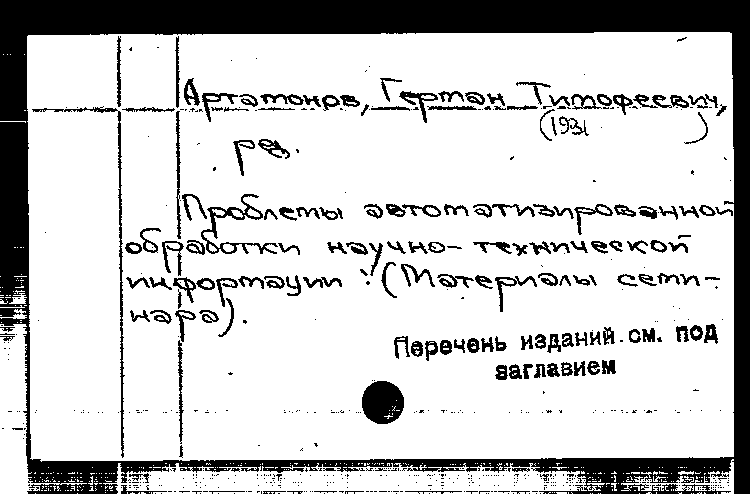 Артамонов, Герман Тимофеевич,
(1931 )
ред.
Проблемы автоматизированной
обработки научно-технической
информации : (Материалы семи-
нара).
Перечень изданий см. под
заглавием